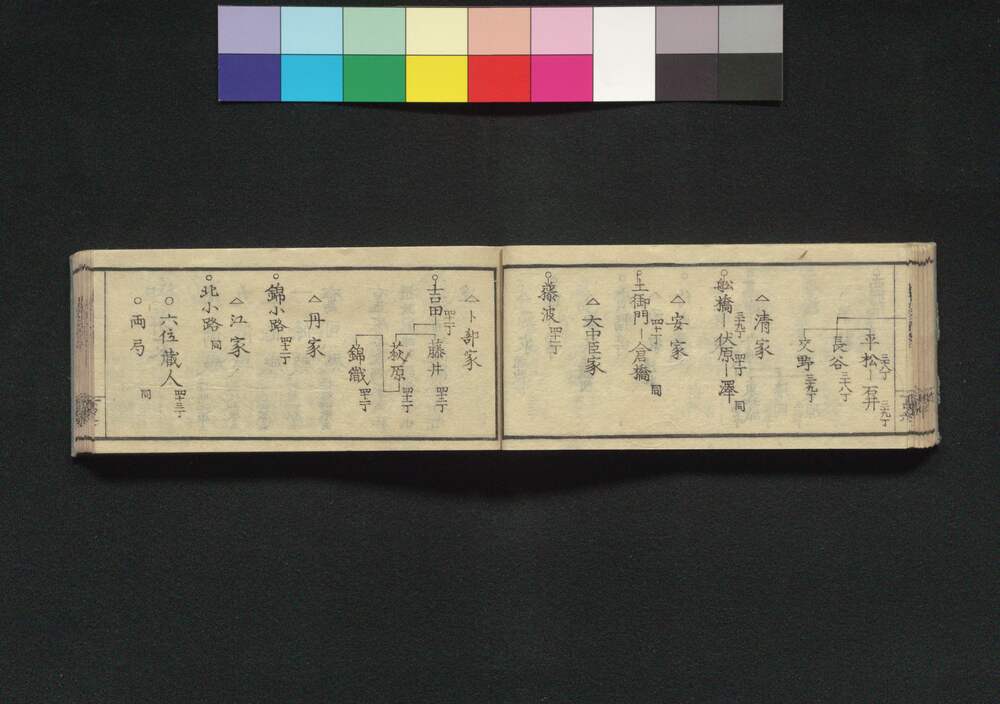 平松 三十八丁 石井 三十九丁
長谷 三十八丁
交野 三十九丁
△清家
○舩橋 三十九丁 伏原 四十丁 澤 同
△安家
土御門 四十一丁 倉橋 同
△大中臣家
○藤波 四十二丁
△卜部家
○吉田 四十二丁 藤井 四十二丁
萩原 四十二丁
錦織 四十二丁
△丹家
○錦小路 四十二丁
△江家
○北小路 同
○六位蔵人 四十三丁
○両局 同